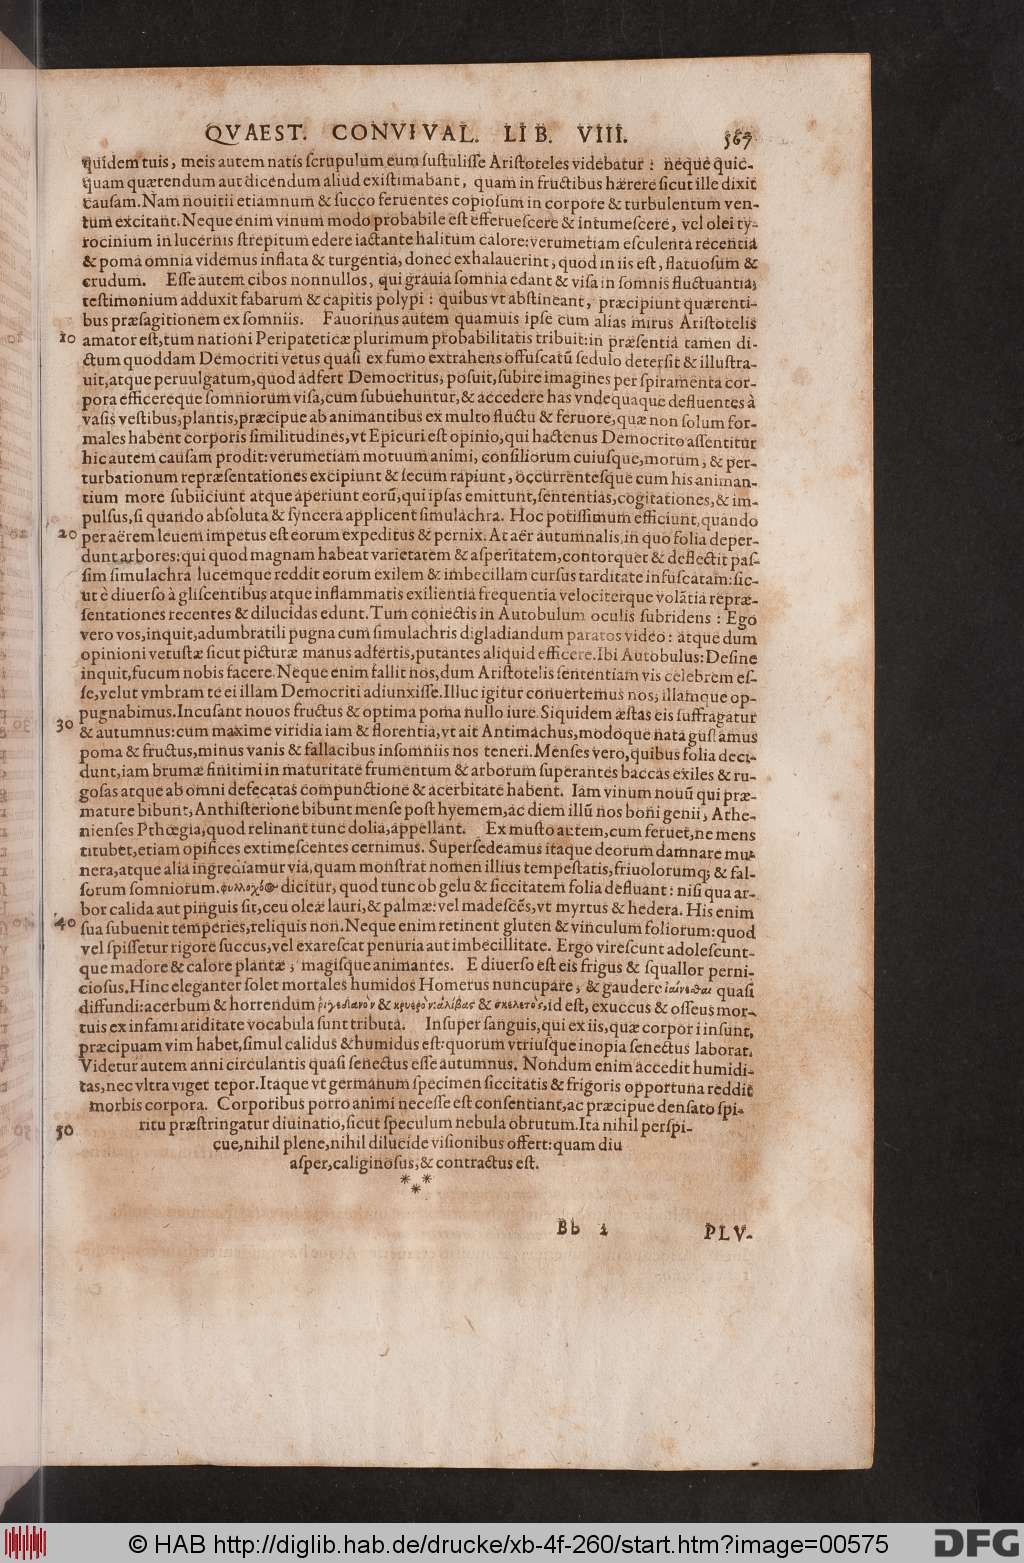 QVAEST. CONVIVAL. LIB. VIII. 567
quidem tuis, meis autem natis scrupulum eum sustulisse Aristoteles videbatur: neque quic-
quam quærendum aut dicendum aliud existimabant, quam in fructibus hærere sicut ille dixit
causam. Nam nouitii etiamnum & succo feruentes copiosum in corpore & turbulentum ven-
tum excitant. Neque enim vinum modo probabile est efferuescere & intumescere, vel olei ty-
rocinium in lucernis strepitum edere iactante halitum calore: verumetiam esculenta recentia
& poma omnia videmus inflata & turgentia, donec exhalauerint, quod in iis est, flatuosum &
crudum. Esse autem cibos nonnullos, qui grauia somnia edant & visa in somnis fluctuantia,
testimonium adduxit fabarum & capitis polypi: quibus vt abstineant, præcipiunt quærenti-
bus præsagitionem ex somniis. Fauorinus autem quamuis ipse cum alias mirus Aristotelis
10 amator est, tum nationi Peripateticæ plurimum probabilitatis tribuit: in præsentia tamen di-
ctum quoddam Democriti vetus quasi ex fumo extrahens offuscatũ sedulo detersit & illustra-
uit, atque peruulgatum, quod adfert Democritus, posuit, subire imagines per spiramenta cor-
pora efficereque somniorum visa, cum subuehuntur, & accedere has vndequaque defluentes à
vasis vestibus, plantis, præcipue ab animantibus ex multo fluctu & feruore, quæ non solum for-
males habent corporis similitudines, vt Epicuri est opinio, qui hactenus Democrito assentitur
hic autem causam prodit: verumetiam motuum animi, consiliorum cuiusque, morum, & per-
turbationum repræsentationes excipiunt & secum rapiunt, occurrentesque cum his animan-
tium more subiiciunt atque aperiunt eorũ, qui ipsas emittunt, sententias, cogitationes, & im-
pulsus, si quando absoluta & syncera applicent simulachra. Hoc potissimum efficiunt, quando
20 per aërem leuem impetus est eorum expeditus & pernix. At aër autumnalis, in quo folia deper-
dunt arbores: qui quod magnam habeat varietatem & asperitatem, contorquet & deflectit pas-
sim simulachra lucemque reddit eorum exilem & imbecillam cursus tarditate infuscatam: sic-
ut è diuerso à gliscentibus atque inflammatis exilientia frequentia velociterque volātia repræ-
sentationes recentes & dilucidas edunt. Tum coniectis in Autobulum oculis subridens: Ego
vero vos, inquit, adumbratili pugna cum simulachris digladiandum paratos video: atque dum
opinioni vetustæ sicut picturæ manus adfertis, putantes aliquid efficere. Ibi Autobulus: Desine
inquit, fucum nobis facere. Neque enim fallit nos, dum Aristotelis sententiam vis celebrem es-
se, velut vmbram te ei illam Democriti adiunxisse. Illuc igitur conuertemus nos, illamque op-
pugnabimus. Incusant nouos fructus & optima poma nullo iure. Siquidem æstas eis suffragatur
30 & autumnus: cum maxime viridia iam & florentia, vt ait Antimachus, modoque nata gustamus
poma & fructus, minus vanis & fallacibus insomniis nos teneri. Menses vero, quibus folia deci-
dunt, iam brumæ finitimi in maturitate frumentum & arborum superantes baccas exiles & ru-
gosas atque ab omni defecatas compunctione & acerbitate habent. Iam vinum nouũ qui præ-
mature bibunt, Anthisterione bibunt mense post hyemem, ac diem illũ nos boni genii, Athe-
nienses Pthœgia, quod relinant tunc dolia, appellant. Ex musto autem, cum feruet, ne mens
titubet, etiam opifices extimescentes cernimus. Supersedeamus itaque deorum damnare mu-
nera, atque alia ingrediamur via, quam monstrat nomen illius tempestatis, friuolorumq; & fal-
sorum somniorum. φυλλοχόος dicitur, quod tunc ob gelu & siccitatem folia defluant: nisi qua ar-
bor calida aut pinguis sit, ceu oleæ lauri, & palmæ: vel madescēs, vt myrtus & hedera. His enim
40 sua subuenit temperies, reliquis non. Neque enim retinent gluten & vinculum foliorum: quod
vel spissetur rigore succus, vel exarescat penuria aut imbecillitate. Ergo virescunt adolescunt-
que madore & calore plantæ, magisque animantes. E diuerso est eis frigus & squallor perni-
ciosus. Hinc eleganter solet mortales humidos Homerus nuncupare, & gaudere ἰαίνεσθαι quasi
diffundi: acerbum & horrendum ῥιγεδανὸν & κρυερόν: ἀλίβας & σκελετὸς, id est, exuccus & osseus mor-
tuis ex infami ariditate vocabula sunt tributa. Insuper sanguis, qui ex iis, quæ corpori insunt,
præcipuam vim habet, simul calidus & humidus est: quorum vtriusque inopia senectus laborat.
Videtur autem anni circulantis quasi senectus esse autumnus. Nondum enim accedit humidi-
tas, nec vltra viget tepor. Itaque vt germanum specimen siccitatis & frigoris opportuna reddit
morbis corpora. Corporibus porro animi necesse est consentiant, ac præcipue densato spi-
50 ritu præstringatur diuinatio, sicut speculum nebula obrutum. Ita nihil perspi-
cue, nihil plene, nihil dilucide visionibus offert: quam diu
asper, caliginosus, & contractus est.
* * *
Bb 2 PLV-
© HAB http://diglib.hab.de/drucke/xb-4f-260/start.htm?image=00575
DFG